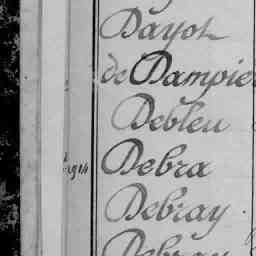 Dayot
de Dampier
Debleu
1914 Debra
Debray
Debray